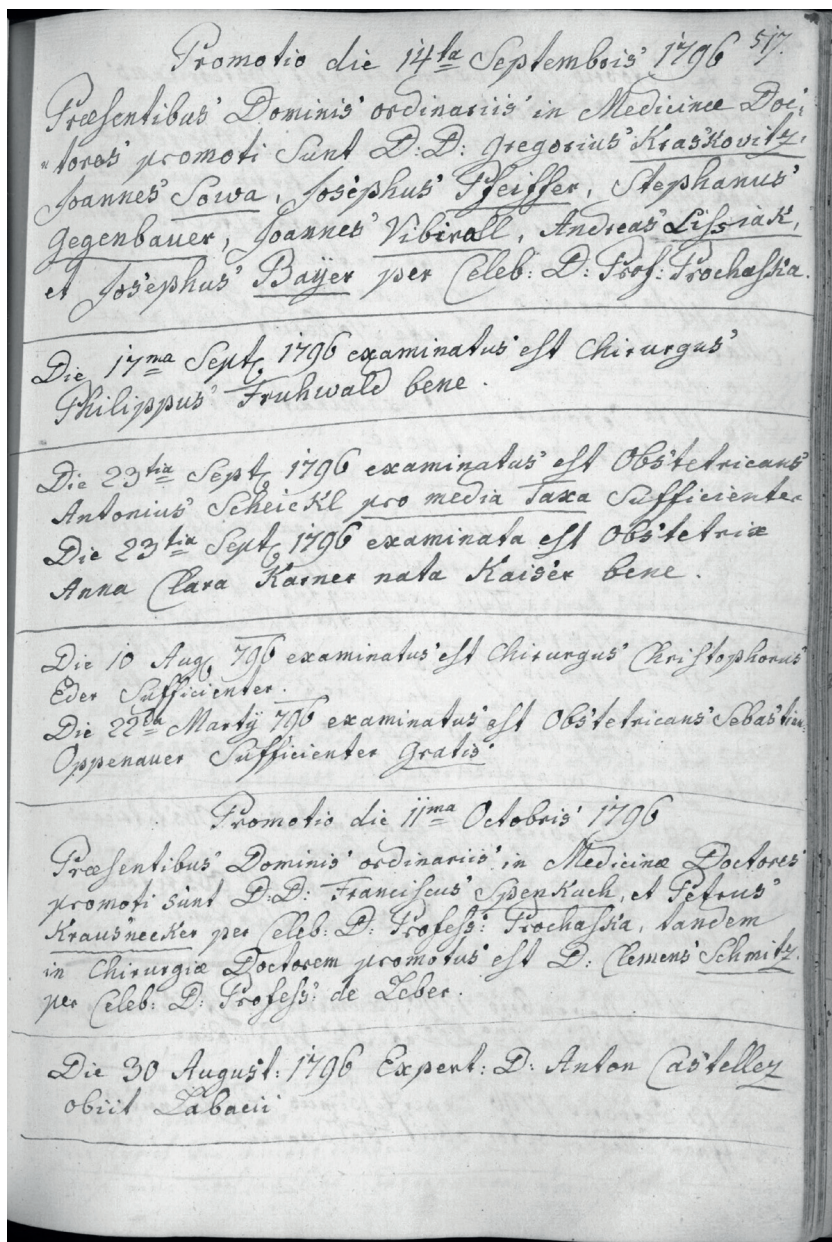 517.
Promotio die 14ta Septembris 1796
Præsentibus Dominis ordinariis in Medicinæ Doc-
"tores promoti sunt D: D: Gregorius Kraskovitz,
Joannes Sowa, Josephus Pfeiffer, Stephanus
Gegenbauer, Joannes Vibirall, Andreas Lissiak,
et Josephus Bayer per Celeb: D: Prof: Prochaska.
Die 17ma Sept. 1796 examinatus est Chirurgus
Philippus Fruhwald bene.
Die 23tia Sept. 1796 examinatus est Obstetricans
Antonius Scheickl pro media Taxa Sufficienter
Die 23tia Sept. 1796 examinata est Obstetrix
Anna Clara Karner nata Kaiser bene.
Die 10 Aug. 796 examinatus est Chirurgus Christophorus
Eder Sufficienter.
Die 22da Martÿ 796 examinatus est Obstetricans Sebastian
Oppenauer Sufficienter gratis.
Promotio die 11ma Octobris 1796
Præsentibus Dominis ordinariis in Medicinæ Doctores
promoti sunt D: D: Franciscus Spenkuch, et Petrus
Krausnecker per Celeb: D: Profess: Prochaska, tandem
in Chirurgiæ Doctorem promotus est D: Clemens Schmitz.
per Celeb: D: Profess: de Leber.
Die 30 August: 1796 Expert: D: Anton Castellez
obiit Labacii